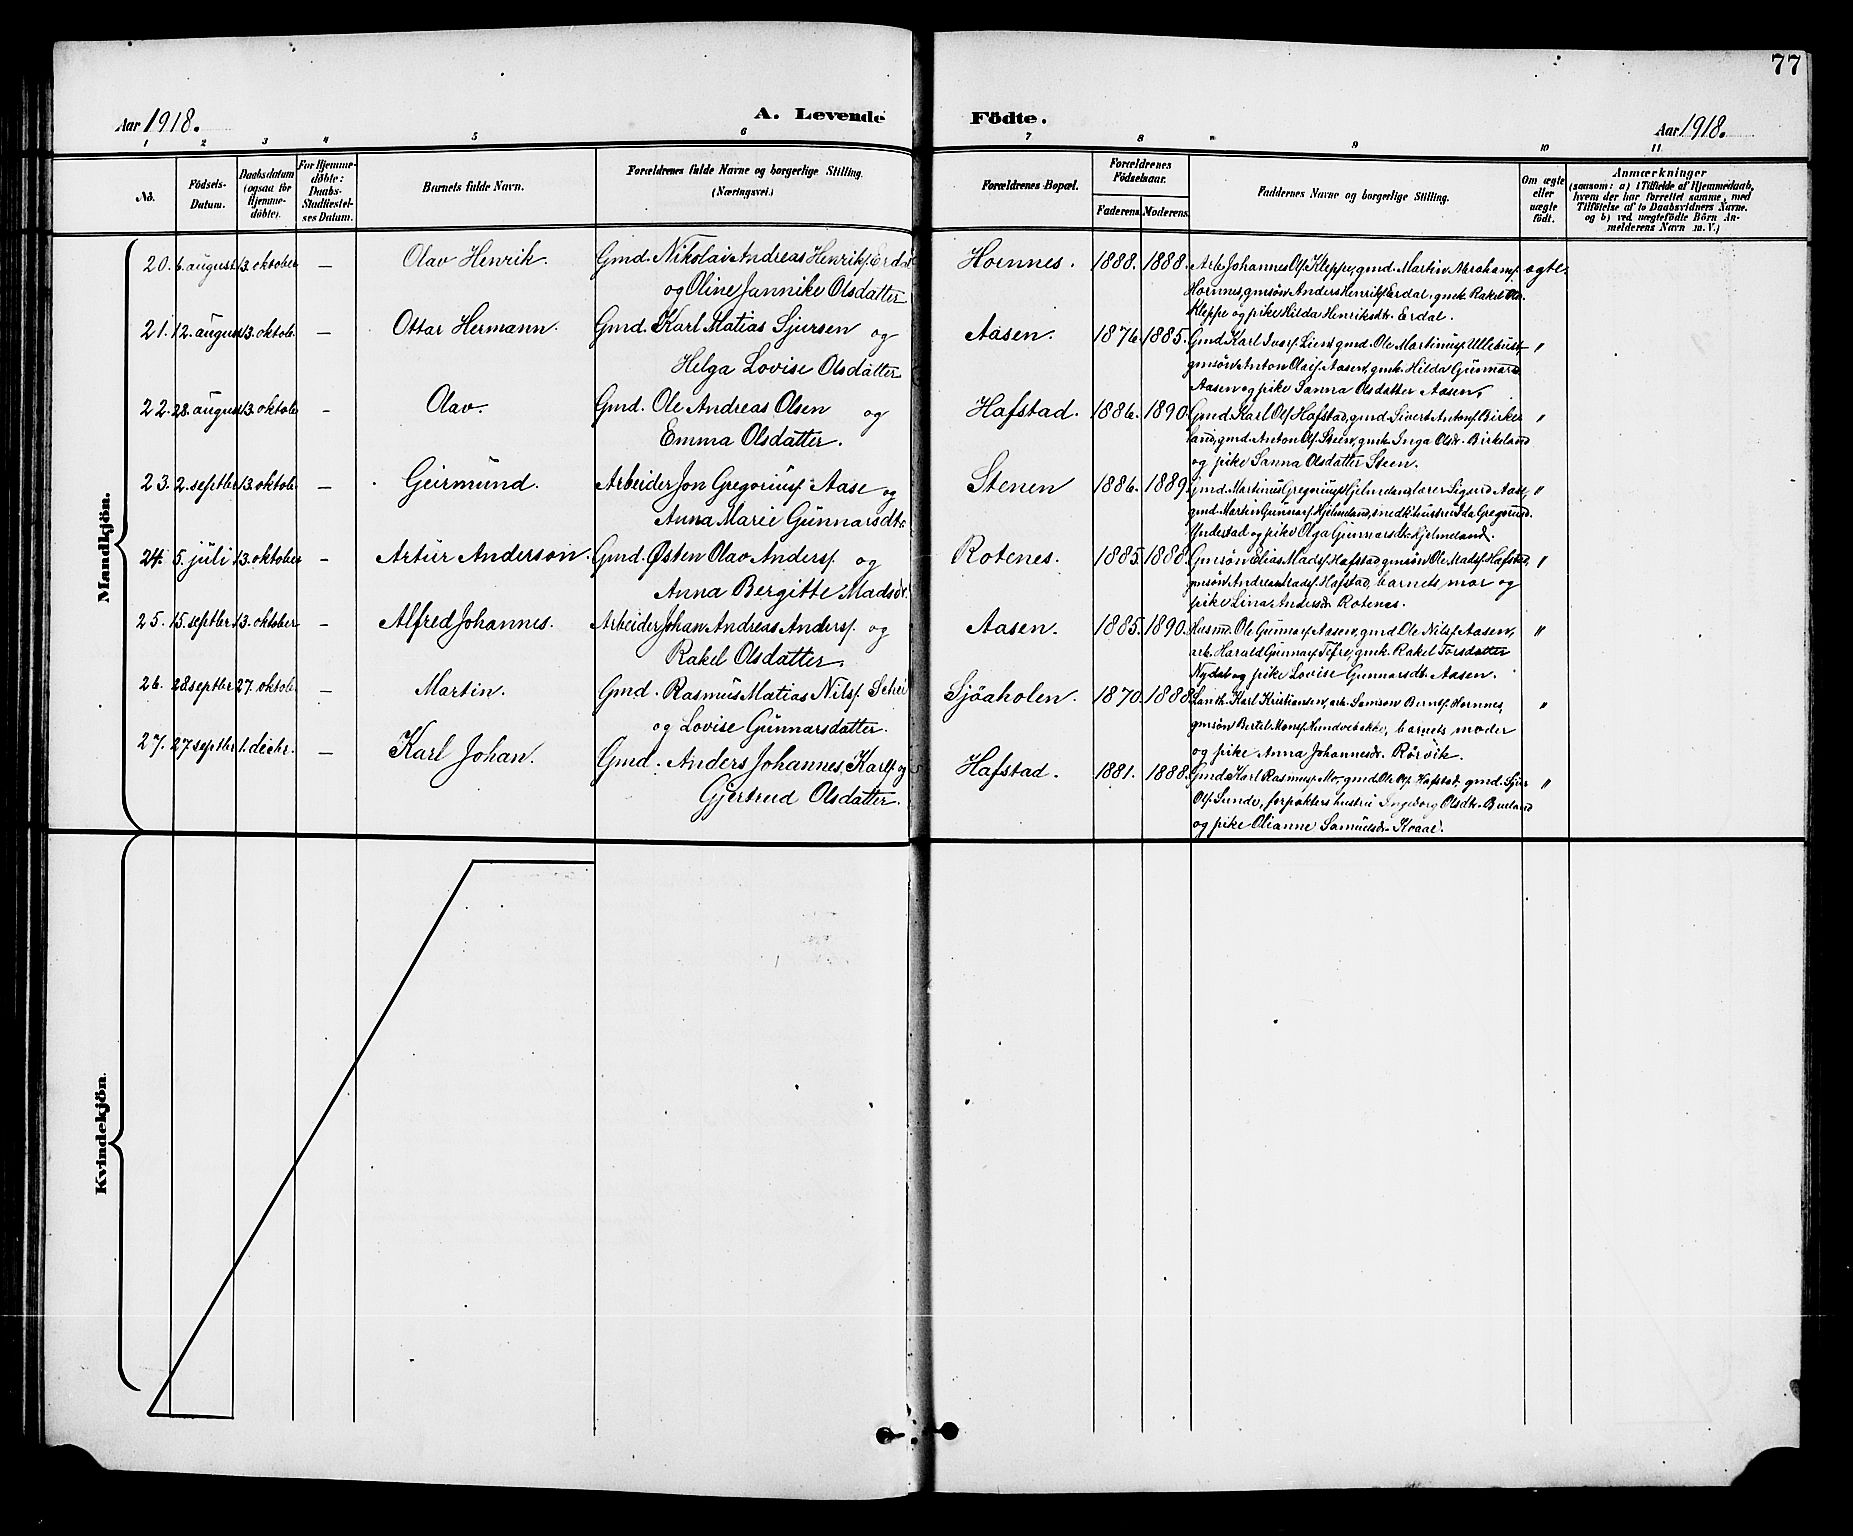 77
Aar 1918.
A. Levende
Födte.
Aar 1918.
1 2 3 4 5 6 7 8 9 10 11
No.
Födsels-
Datum.
Daabsdatum
(ogsaa for
Hjemme-
döbte).
For Hjemme-
döbte:
Daabs-
Stadfæstel-
ses Datum.
Barnets fulde Navn.
Forældrenes fulde Navne og borgerlige Stilling.
(Næringsvei.)
Forældrenes Bopæl.
Forældrenes
Födselsaar.
Faderens.
Moderens.
Faddernes Navne og borgerlige Stilling.
Om ægte
eller
uægte
födt.
Anmærkninger
(saasom: a) i Tilfælde af Hjemmedaab,
hvem der har forrettet samme, med
Tilföielse af to Daabsvidners Navne.
og b) ved uægtefödte Börn An-
melderens Navn m. V.)
Mandkjön.
20. 6. august 13. oktober — Olav Henrik. Gmd. Nikolai Andreas Henriks. Erdal
og Oline Jannike Olsdatter
Hornnes. 1888. 1888. Arb. Johannes Ols. Kleppe, gmd. Martin Abrahams. ægte.
Hornnes, gmsön Anders Henriks. Erdal, gmk. Rakel Ols.
Kleppe og pike Hilda Henriksdr. Erdal.
21. 12. august 13. oktob. — Ottar Hermann. Gmd. Karl Matias Sjursen og
Helga Lovise Olsdatter
Aasen. 1876. 1885. Gmd. Karl Ivars. Lien, gmd. Ole Martinus Ullebust, "
gmsön Anton Olais. Aasen, gmk. Hilda Gunnars.
Aasen og pike Sanna Olsdatter Aasen.
22. 28. august 13. oktob. — Olav. Gmd. Ole Andreas Olsen og
Emma Olsdatter.
Hafstad. 1886. 1890. Gmd. Karl Ols. Hafstad, gmd. Sivert Antons. Birke- "
land, gmd. Anton Ols. Steen, gmk. Inga Olsdr. Birkeland
og pike Sanna Olsdatter Steen.
23. 2. septbr. 13. oktob. — Geirmund. Arbeider Jon Gregorius. Aase og
Anna Marie Gunnarsdtr.
Stenen 1886. 1889. Gmd. Martinus Gregorius. Hjelmeland, lærer Sigurd Aase, "
gmd. Martin Gunnars. Hjelmeland, snedk. hustru Ida Gregoriusd.
Yndestad og pike Olga Gunnarsdtr. Hjelmeland.
24. 5. juli 13. oktober — Artur Anderson. Gmd. Østen Olav Anders. og
Anna Bergitte Madsdr.
Rotenes. 1885. 1888. Gmsön Elias Mads. Hafstad, gmsön Ole Mads. Hafstad, "
gmsön Andreas Mads. Hafstad, barnets mor og
pike Lina Andersdr. Rotenes.
25. 15. septbr. 13. oktober — Alfred Johannes. Arbeider Johan Andreas Anders. og
Rakel Olsdatter.
Aasen. 1885. 1890. Husmd. Ole Gunnars. Aasen, gmd. Ole Nils. Aasen, "
arb. Harald Gunnars. Tefre, gmk. Rakel Torsdatter
Nydal og pike Lovise Gunnarsdtr. Aasen.
26. 28. septbr. 27. oktob. — Martin. Gmd. Rasmus Matias Nils. Schei
og Lovise Gunnarsdatter.
Sjöaholen 1870. 1888. Landh. Karl Kristiansen, arb. Samson Bernts. Hornnes, "
gmsön Bertel Mons. Hundvebakke, barnets moder
og pike Anna Johannesdr. Rörvik.
27. 27. septbr. 1. decbr. — Karl Johan. Gmd. Anders Johannes, Karls. og
Gjertrud Olsdatter.
Hafstad. 1881. 1888. Gmd. Karl Rasmus. Mo, gmd. Ole Ols. Hafstad, gmd. Sjur "
Ols. Sunde, forpakters hustru Ingeborg Olsdtr. Bruland
og pike Olianne Samuelsdr. Kvaal.
Kvindekjön.